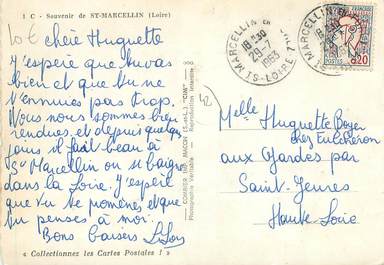 1 C - Souvenir de ST-MARCELLIN (Loire)
10 €
chère Huguette
J'espère que tu vas
bien et que tu ne
t'ennuies pas trop.
Nous nous sommes bien
rendues, et depuis quelques
jours il fait beau à
St Marcellin on se baigne
dans la Loire. J'espère
que tu te promènes et que
tu penses à moi.
Bons baisers
« Collectionnez les Cartes Postales ! »
COMBIER IMP. MACON (S.-et-L.) "CIM"
Photographie Véritable - Reproduction Interdite
42
ST MARCELLIN EN
18 H 30
29-7
1963
LOIRE
0,20
Melle Huguette Boyer
chez Eulchéron
aux Gardes par
Saint-Jeures
Haute Loire